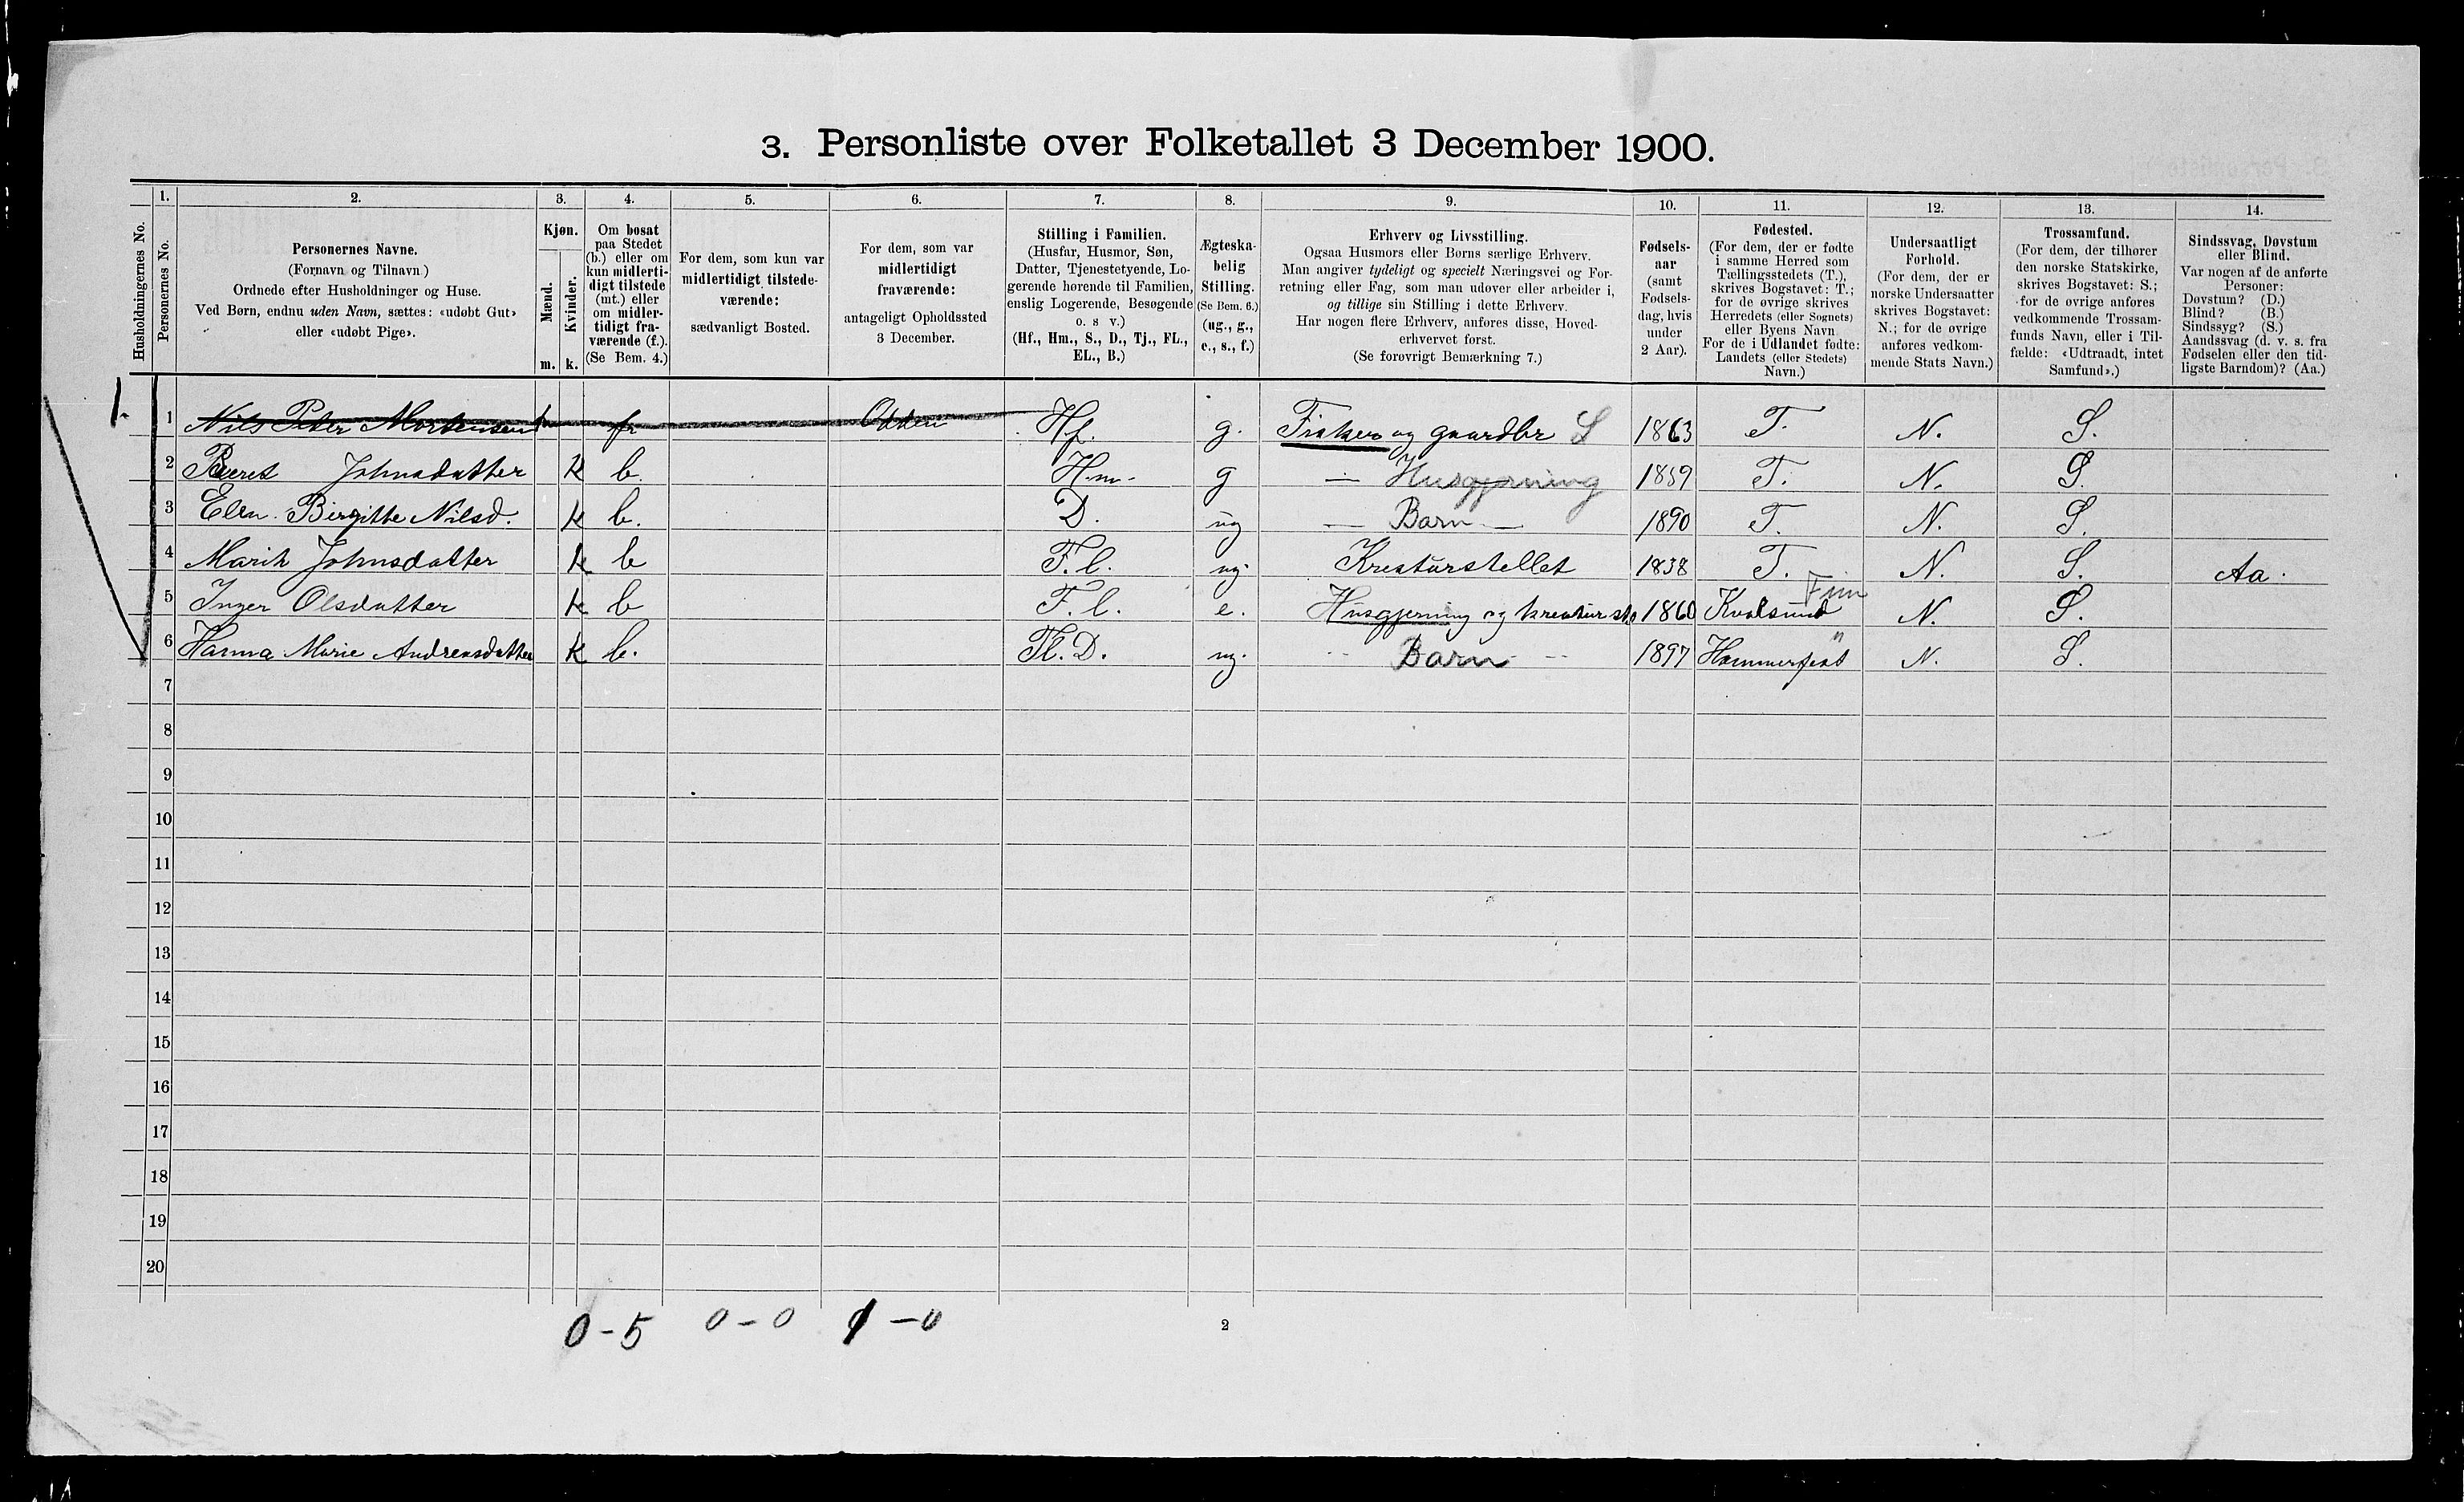 3. Personliste over Folketallet 3 December 1900.
1. 2. 3. 4. 5. 6. 7. 8. 9. 10. 11. 12. 13. 14.
Husholdningernes No.
Personernes No.
Personernes Navne.
(Fornavn og Tilnavn)
Ordnede efter Husholdninger og Huse.
Ved Børn, endnu uden Navn, sættes: «udøbt Gut»
eller «udøbt Pige».
Kjøn.
Mænd.
Kvinder.
m. k.
Om bosat
paa Stedet
(b.) eller om
kun midlerti-
digt tilstede
(mt.) eller
om midler-
tidigt fra-
værende (f.).
(Se Bem. 4.)
For dem, som kun var
midlertidigt tilstede-
værende:
sædvanligt Bosted.
For dem, som var
midlertidigt
fraværende:
antageligt Opholdssted
3 December.
Stilling i Familien.
(Husfar, Husmor, Søn,
Datter, Tjenestetyende, Lo-
gerende hørende til Familien,
enslig Logerende, Besøgende
o. s v.)
(Hf., Hm., S., D., Tj., FL.,
EL., B.)
Ægteska-
belig
Stilling.
(Se Bem. 6.)
(ug., g.,
e., s., f.)
Erhverv og Livsstilling.
Ogsaa Husmors eller Børns særlige Erhverv.
Man angiver tydeligt og specielt Næringsvei og For-
retning eller Fag, som man udøver eller arbeider i,
og tillige sin Stilling i dette Erhverv.
Har nogen flere Erhverv, anføres disse, Hoved-
erhvervet først.
(Se forøvrigt Bemærkning 7.)
Fødsels-
aar
(samt
Fødsels-
dag, hvis
under
2 Aar).
Fødested.
(For dem, der er fødte
i samme Herred som
Tællingsstedets (T.),
skrives Bogstavet: T.;
for de øvrige skrives
Herredets (eller Sognets)
eller Byens Navn
For de i Udlandet fødte:
Landets (eller Stedets)
Navn.)
Undersaatligt
Forhold.
(For dem, der er
norske Undersaatter
skrives Bogstavet:
N.; for de øvrige
anføres vedkom-
mende Stats Navn.)
Trossamfund.
(For dem, der tilhører
den norske Statskirke,
skrives Bogstavet: S.;
for de øvrige anføres
vedkommende Trossam-
funds Navn, eller i Til-
fælde: «Udtraadt, intet
Samfund».)
Sindssvag, Døvstum
eller Blind.
Var nogen af de anførte
Personer:
Døvstum? (D.)
Blind? (B.)
Sindssyg? (S.)
Aandssvag (d. v. s. fra
Fødselen eller den tid-
ligste Barndom)? (Aa.)
1. 1 Nils Peder Mortensen fr Hf. g. Fisker og gaardbr S 1863 T. N. S.
2 Beret Johnsdatter k b. Hm. g — Husgjerning 1859 T. N. S.
3 Elen Birgitte Nilsd. k b. D. ug — Barn — 1890 T. N. S.
4 Marit Johnsdatter k b F.l. ug. Kreaturstellet 1838 T. N. S. Aa.
5 Inger Olsdatter k b F.l. e. Husgjerning og kreaturst. 1860 Kvalsund Fin N. S.
6 Hanna Marie Andreasdatter k b. Fl. D. ug. Barn 1897 Hammerfest " N. S.
7
8
9
10
11
12
13
14
15
16
17
18
19
20
0-5 0-0 1-0
2